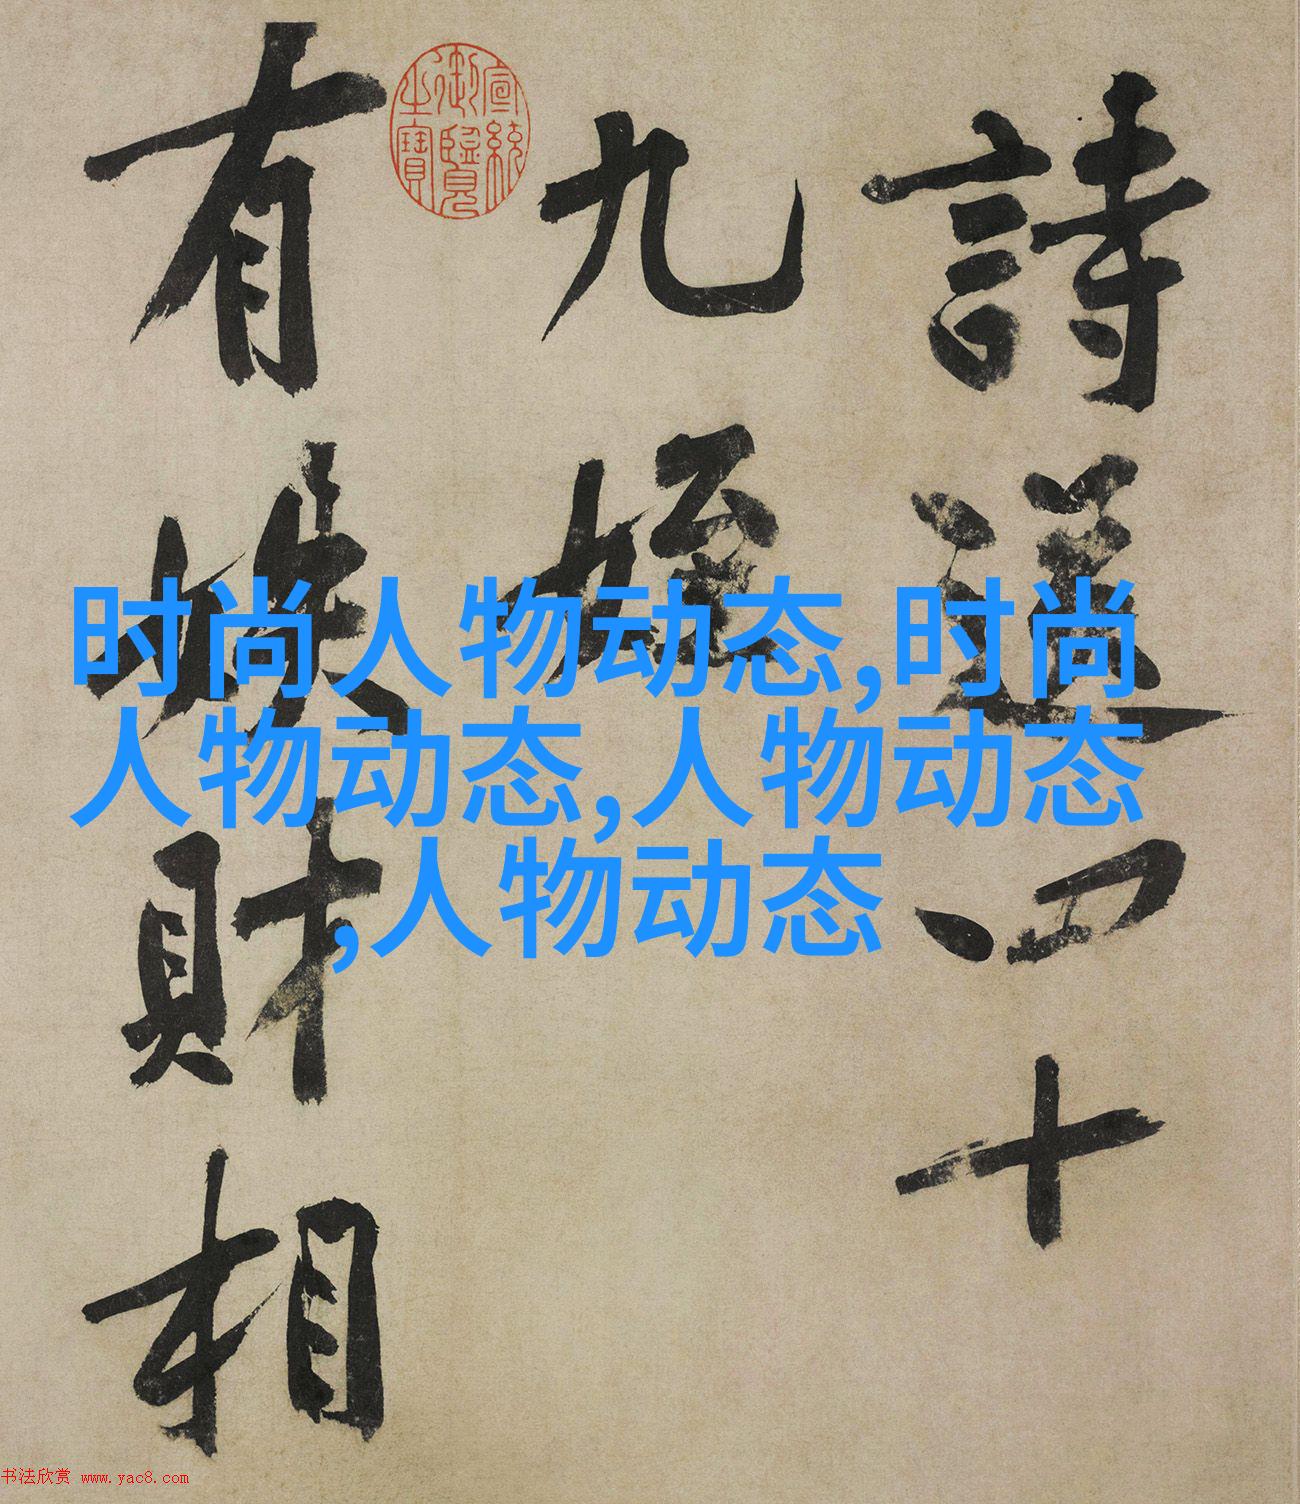 詩送四十
九姪
宣統御覽之寶
有財相
时尚人物动态,时尚
人物动态,人物动态
,人物动态
书法欣赏 www.yac8.com